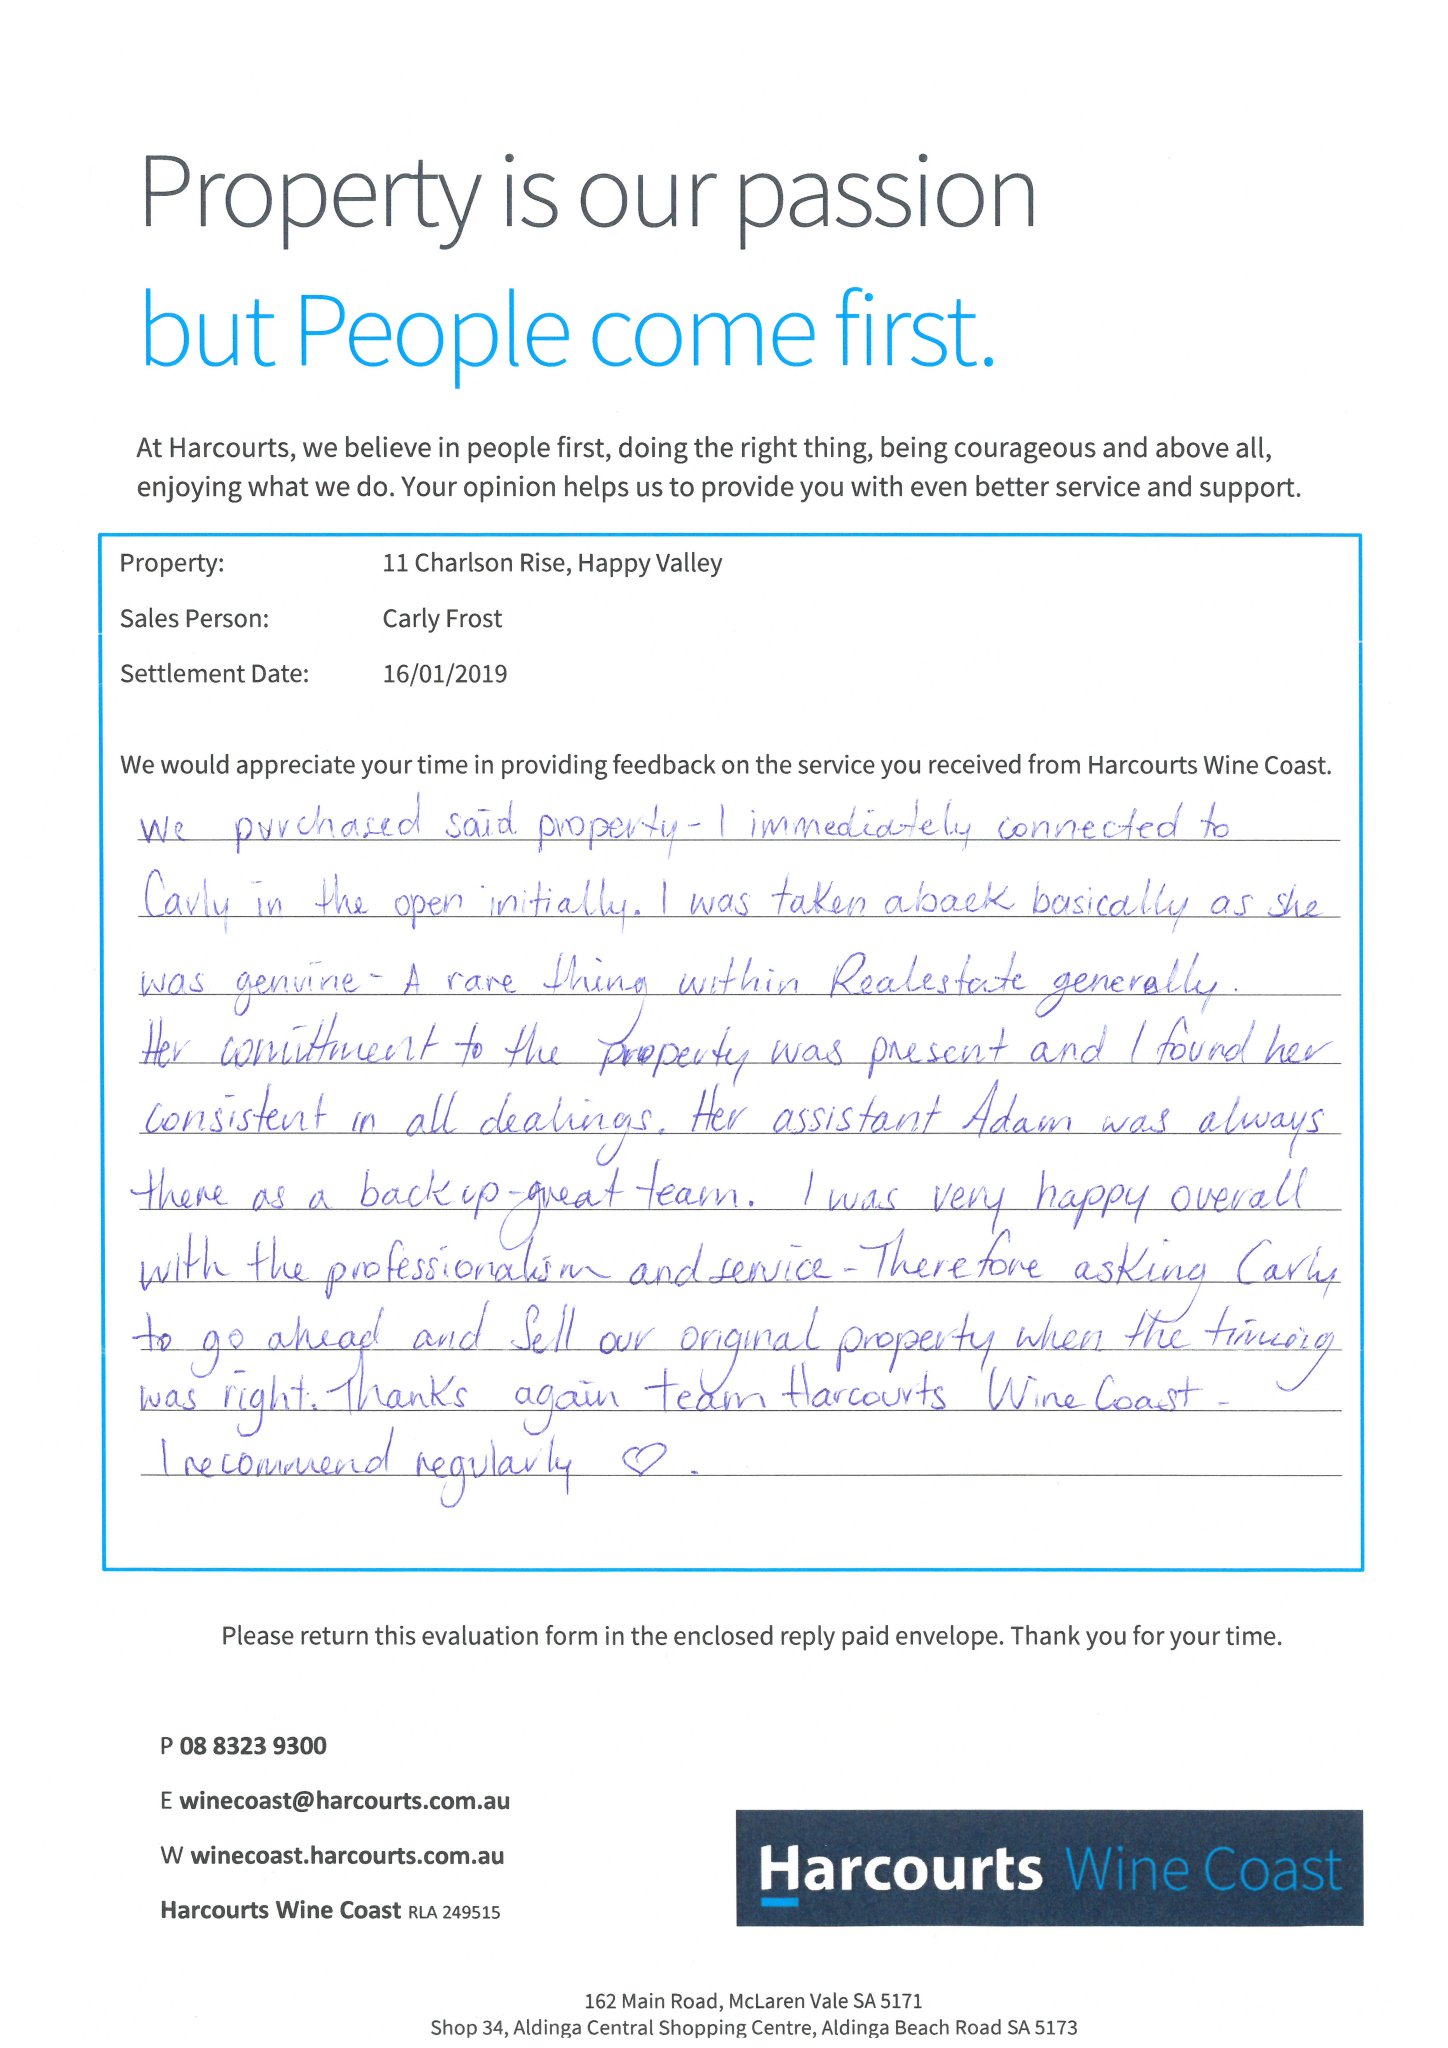 Property is our passion
but People come first.
At Harcourts, we believe in people first, doing the right thing, being courageous and above all,
enjoying what we do. Your opinion helps us to provide you with even better service and support.
Property: 11 Charlson Rise, Happy Valley
Sales Person: Carly Frost
Settlement Date: 16/01/2019
We would appreciate your time in providing feedback on the service you received from Harcourts Wine Coast.
We purchased said property - I immediately connected to
Carly in the open initially. I was taken aback basically as she
was genuine - A rare thing within Realestate generally.
Her comittment to the property was present and I found her
consistent in all dealings. Her assistant Adam was always
there as a back up - great team. I was very happy overall
with the professionalism and service - Therefore asking Carly
to go ahead and Sell our original property when the timing
was right. Thanks again team Harcourts Wine Coast -
I recommend regularly ♡.
Please return this evaluation form in the enclosed reply paid envelope. Thank you for your time.
P 08 8323 9300
E winecoast@harcourts.com.au
W winecoast.harcourts.com.au
Harcourts Wine Coast RLA 249515
Harcourts Wine Coast
162 Main Road, McLaren Vale SA 5171
Shop 34, Aldinga Central Shopping Centre, Aldinga Beach Road SA 5173